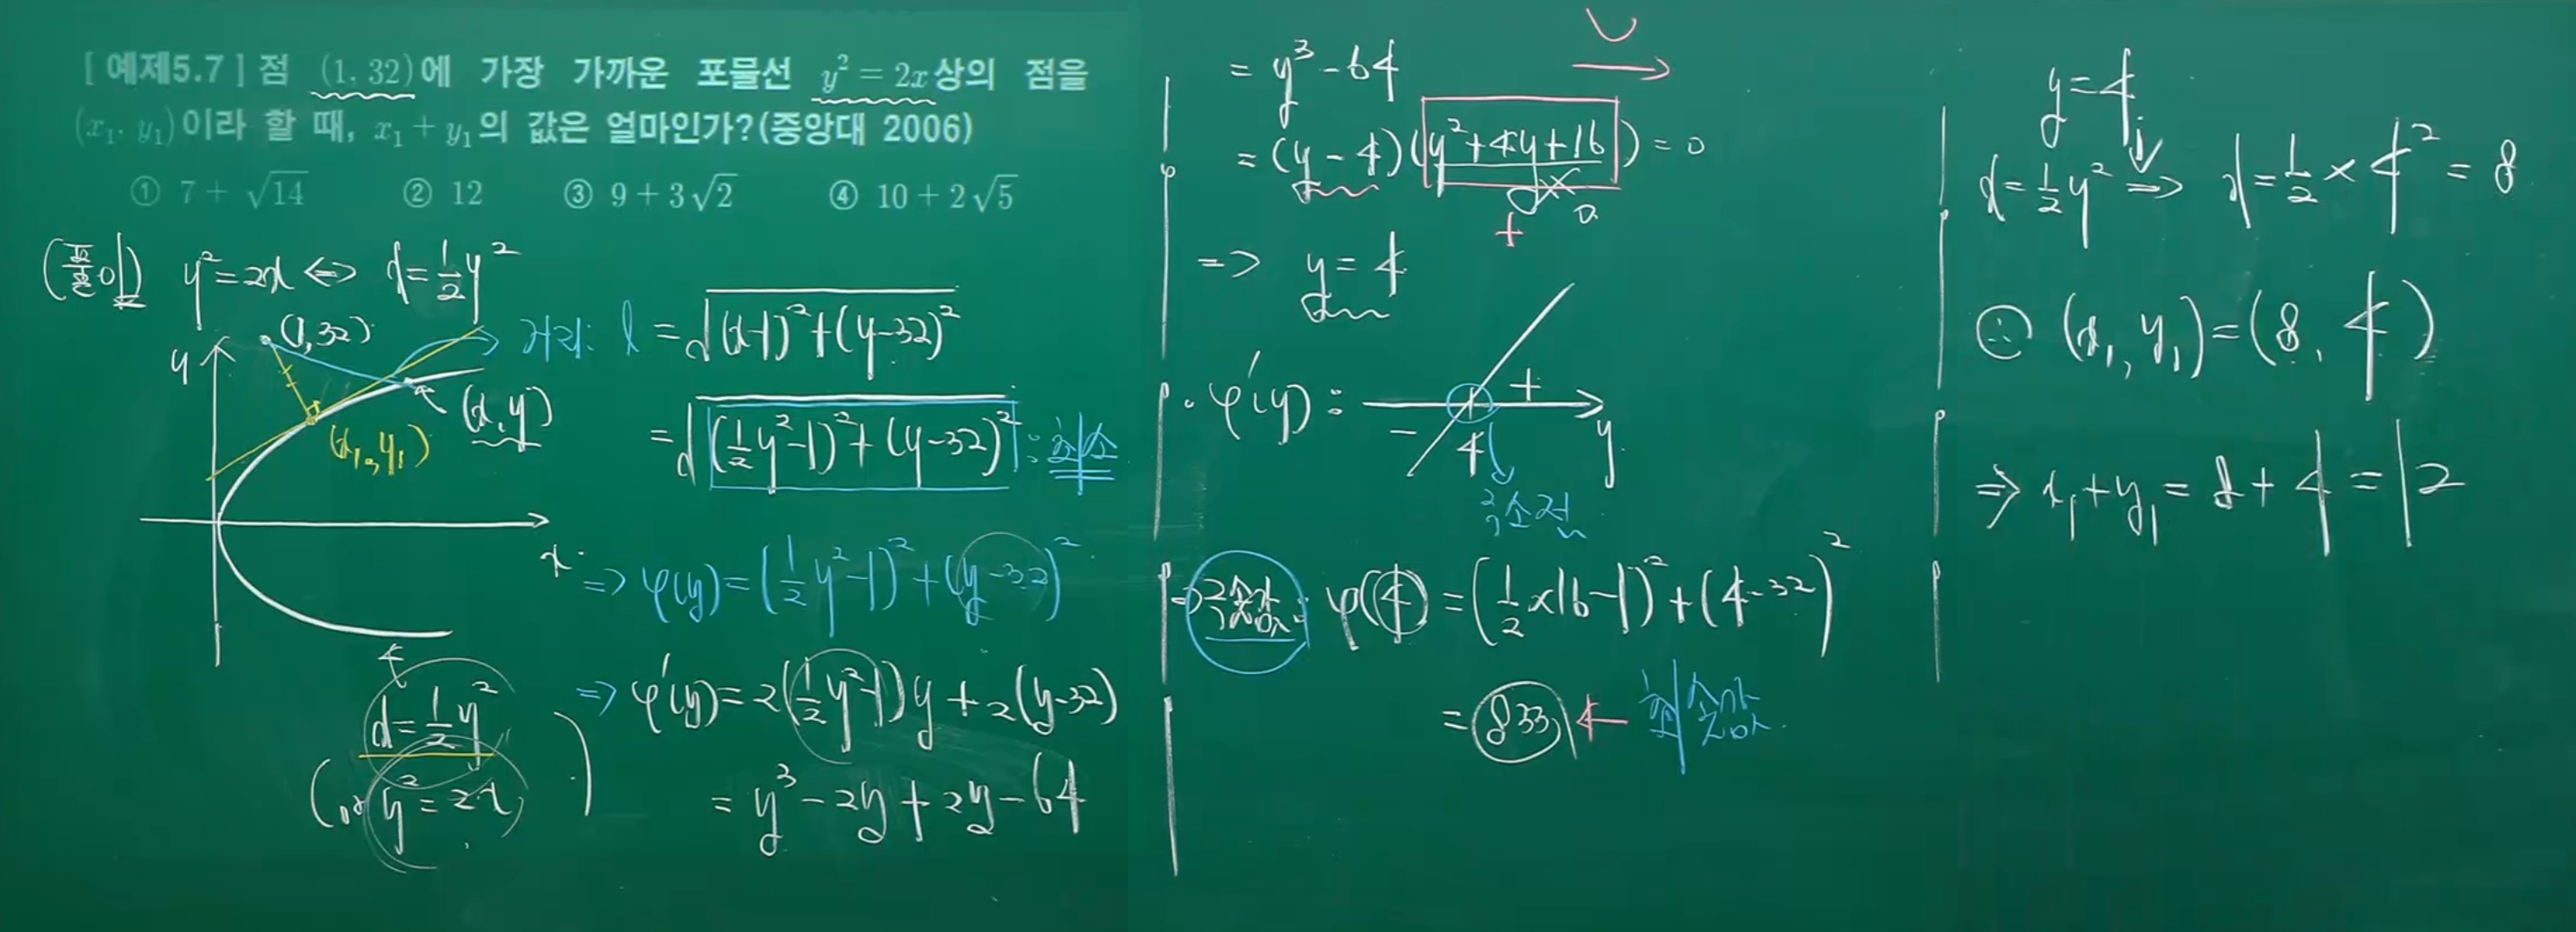 [ 예제5.7 ] 점 (1, 32)에 가장 가까운 포물선 y² = 2x상의 점을
(x₁, y₁)이라 할 때, x₁ + y₁의 값은 얼마인가?(중앙대 2006)
① 7 + √14 ② 12 ③ 9 + 3√2 ④ 10 + 2√5
(풀이) y² = 2x ⇔ x = ½y²
(1, 32)
y
(x, y)
(x₁, y₁)
x
x = ½y²
(or y² = 2x)
거리: l = √((x-1)² + (y-32)²)
= √((½y²-1)² + (y-32)²) : 최소
⇒ φ(y) = (½y²-1)² + (y-32)²
⇒ φ'(y) = 2(½y²-1)y + 2(y-32)
= y³ - 2y + 2y - 64
= y³ - 64
= (y - 4)(y² + 4y + 16) = 0
+
⇒ y = 4
· φ'(y) :
- 4 + y
극소점
⇒ 극솟값: φ(4) = (½×16-1)² + (4-32)²
= 833 ← 최솟값
y = 4
x = ½y² ⇒ x = ½ × 4² = 8
∴ (x₁, y₁) = (8, 4)
⇒ x₁ + y₁ = 8 + 4 = 12